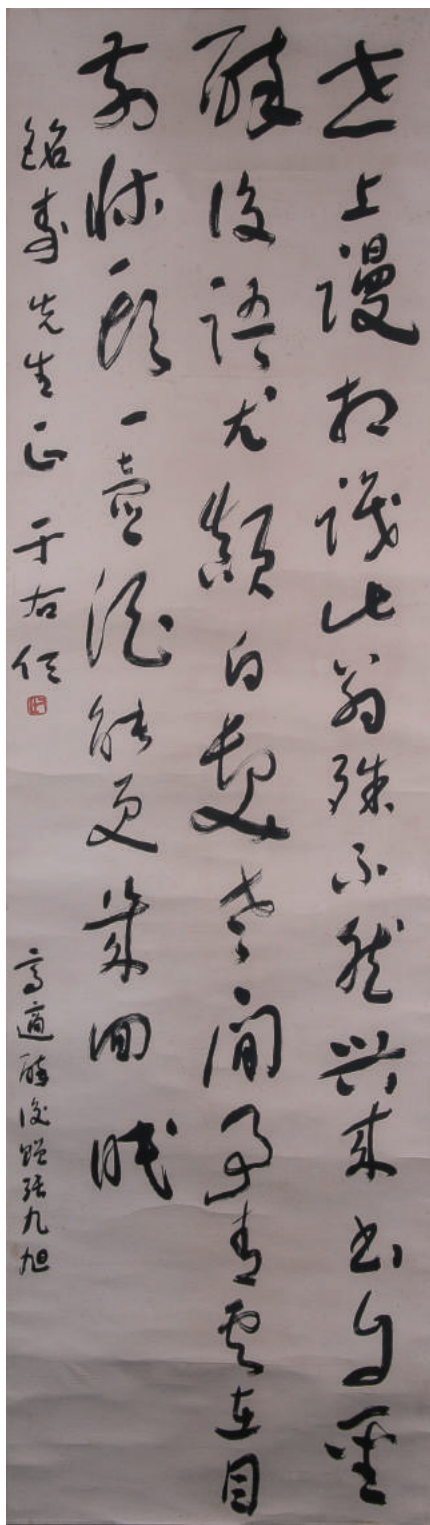 世上謾相識此翁殊不然興來書自聖
醉後語尤顛白髮老閒事青雲在目
前牀頭一壺酒能更幾回眠
銘壽先生正 于右任
高適醉後贈張九旭